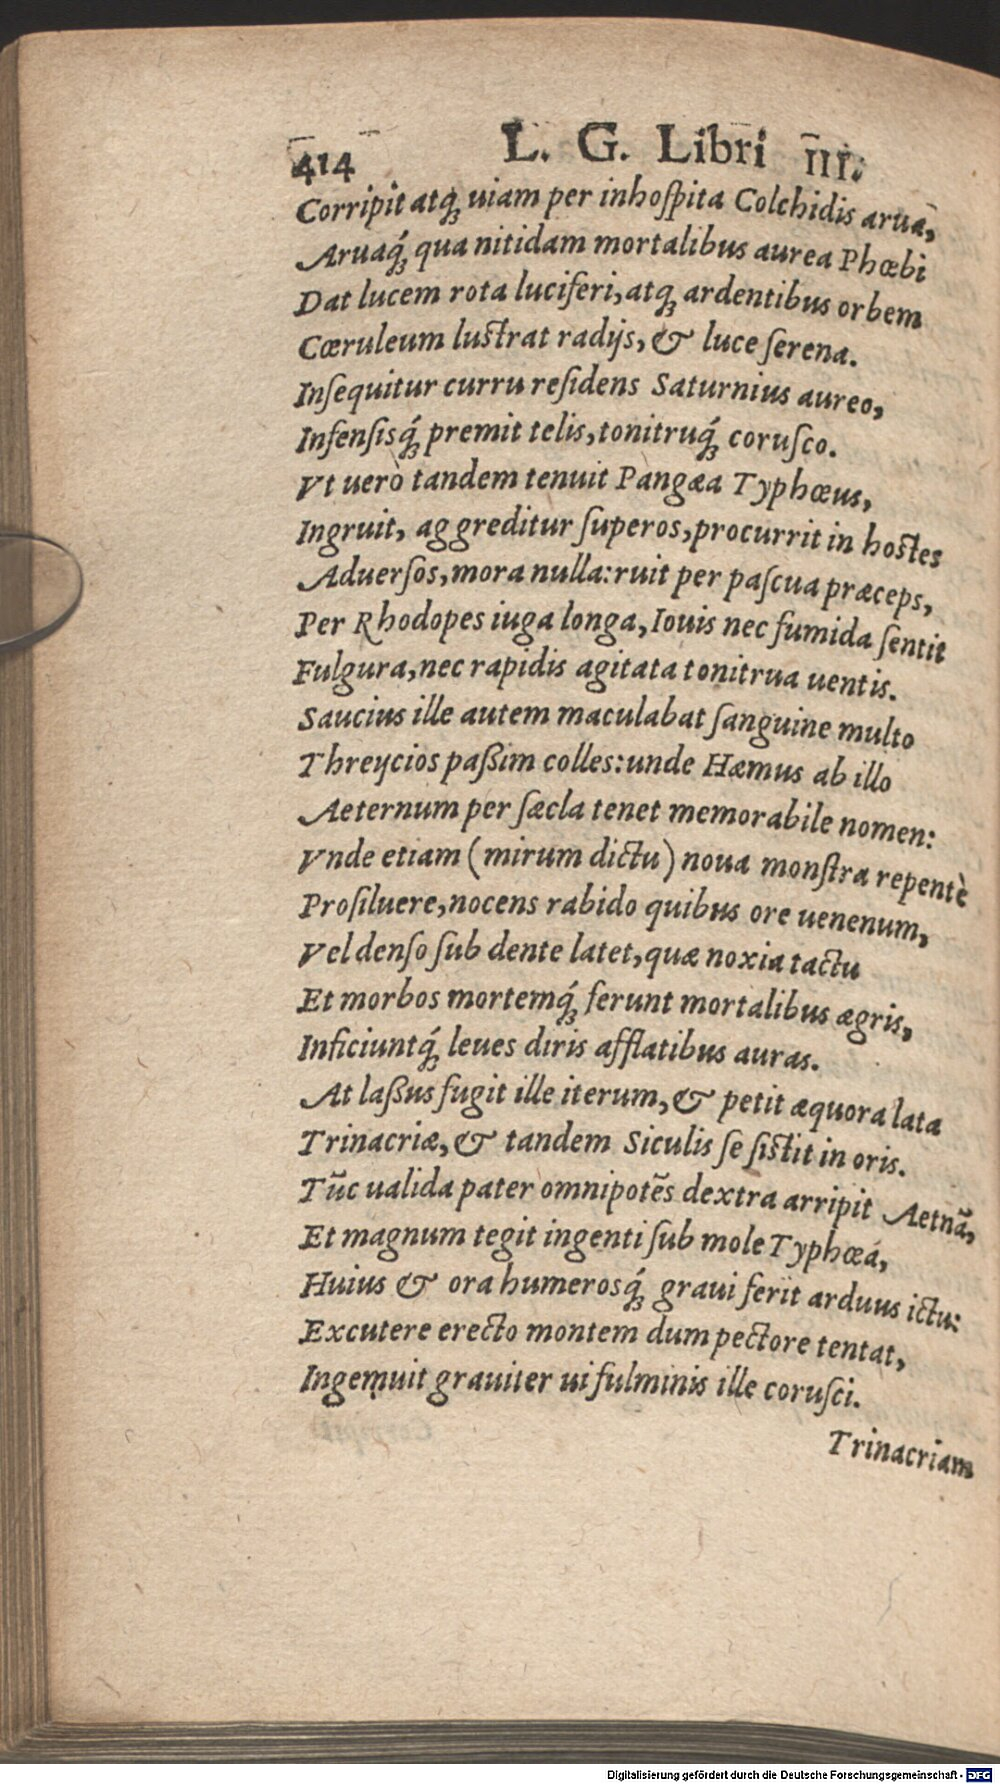 414 L. G. Libri III.
Corripit atq; uiam per inhoſpita Colchidis arua,
Aruaq́; qua nitidam mortalibus aurea Phœbi
Dat lucem rota luciferi, atq; ardentibus orbem
Cœruleum luſtrat radijs, & luce ſerena.
Inſequitur curru reſidens Saturnius aureo,
Infenſisq́; premit telis, tonitruq́; coruſco.
Vt uerò tandem tenuit Pangæa Typhœus,
Ingruit, aggreditur ſuperos, procurrit in hoſtes
Aduerſos, mora nulla: ruit per paſcua præceps,
Per Rhodopes iuga longa, Iouis nec fumida ſentit
Fulgura, nec rapidis agitata tonitrua uentis.
Saucius ille autem maculabat ſanguine multo
Threycios paßim colles: unde Hæmus ab illo
Aeternum per ſæcla tenet memorabile nomen:
Vnde etiam (mirum dictu) noua monſtra repentè
Proſiluere, nocens rabido quibus ore uenenum,
Vel denſo ſub dente latet, quæ noxia tactu
Et morbos mortemq́; ferunt mortalibus ægris,
Inficiuntq́; leues diris afflatibus auras.
At laßus fugit ille iterum, & petit æquora lata
Trinacriæ, & tandem Siculis ſe ſiſtit in oris.
Tūc ualida pater omnipotēs dextra arripit Aetnā,
Et magnum tegit ingenti ſub mole Typhœá,
Huius & ora humerosq́; graui ferit arduus ictu:
Excutere erecto montem dum pectore tentat,
Ingemuit grauiter ui fulminis ille coruſci.
Trinacriam
Digitalisierung gefördert durch die Deutsche Forschungsgemeinschaft - DFG